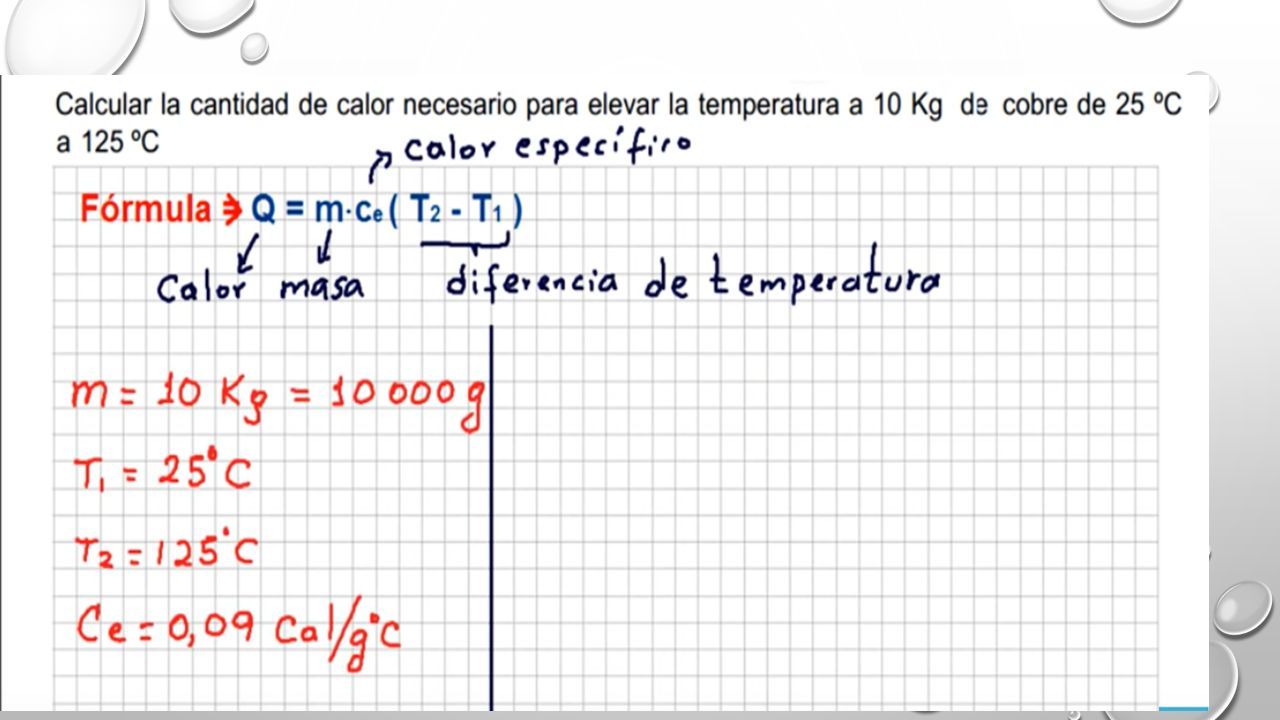 Calcular la cantidad de calor necesario para elevar la temperatura a 10 Kg de cobre de 25 ºC
a 125 ºC
calor específico
Fórmula ⇒ Q = m·ce ( T2 - T1 )
Calor masa diferencia de temperatura
m = 10 Kg = 10 000 g
T1 = 25°C
T2 = 125°C
Ce = 0,09 Cal/g°C